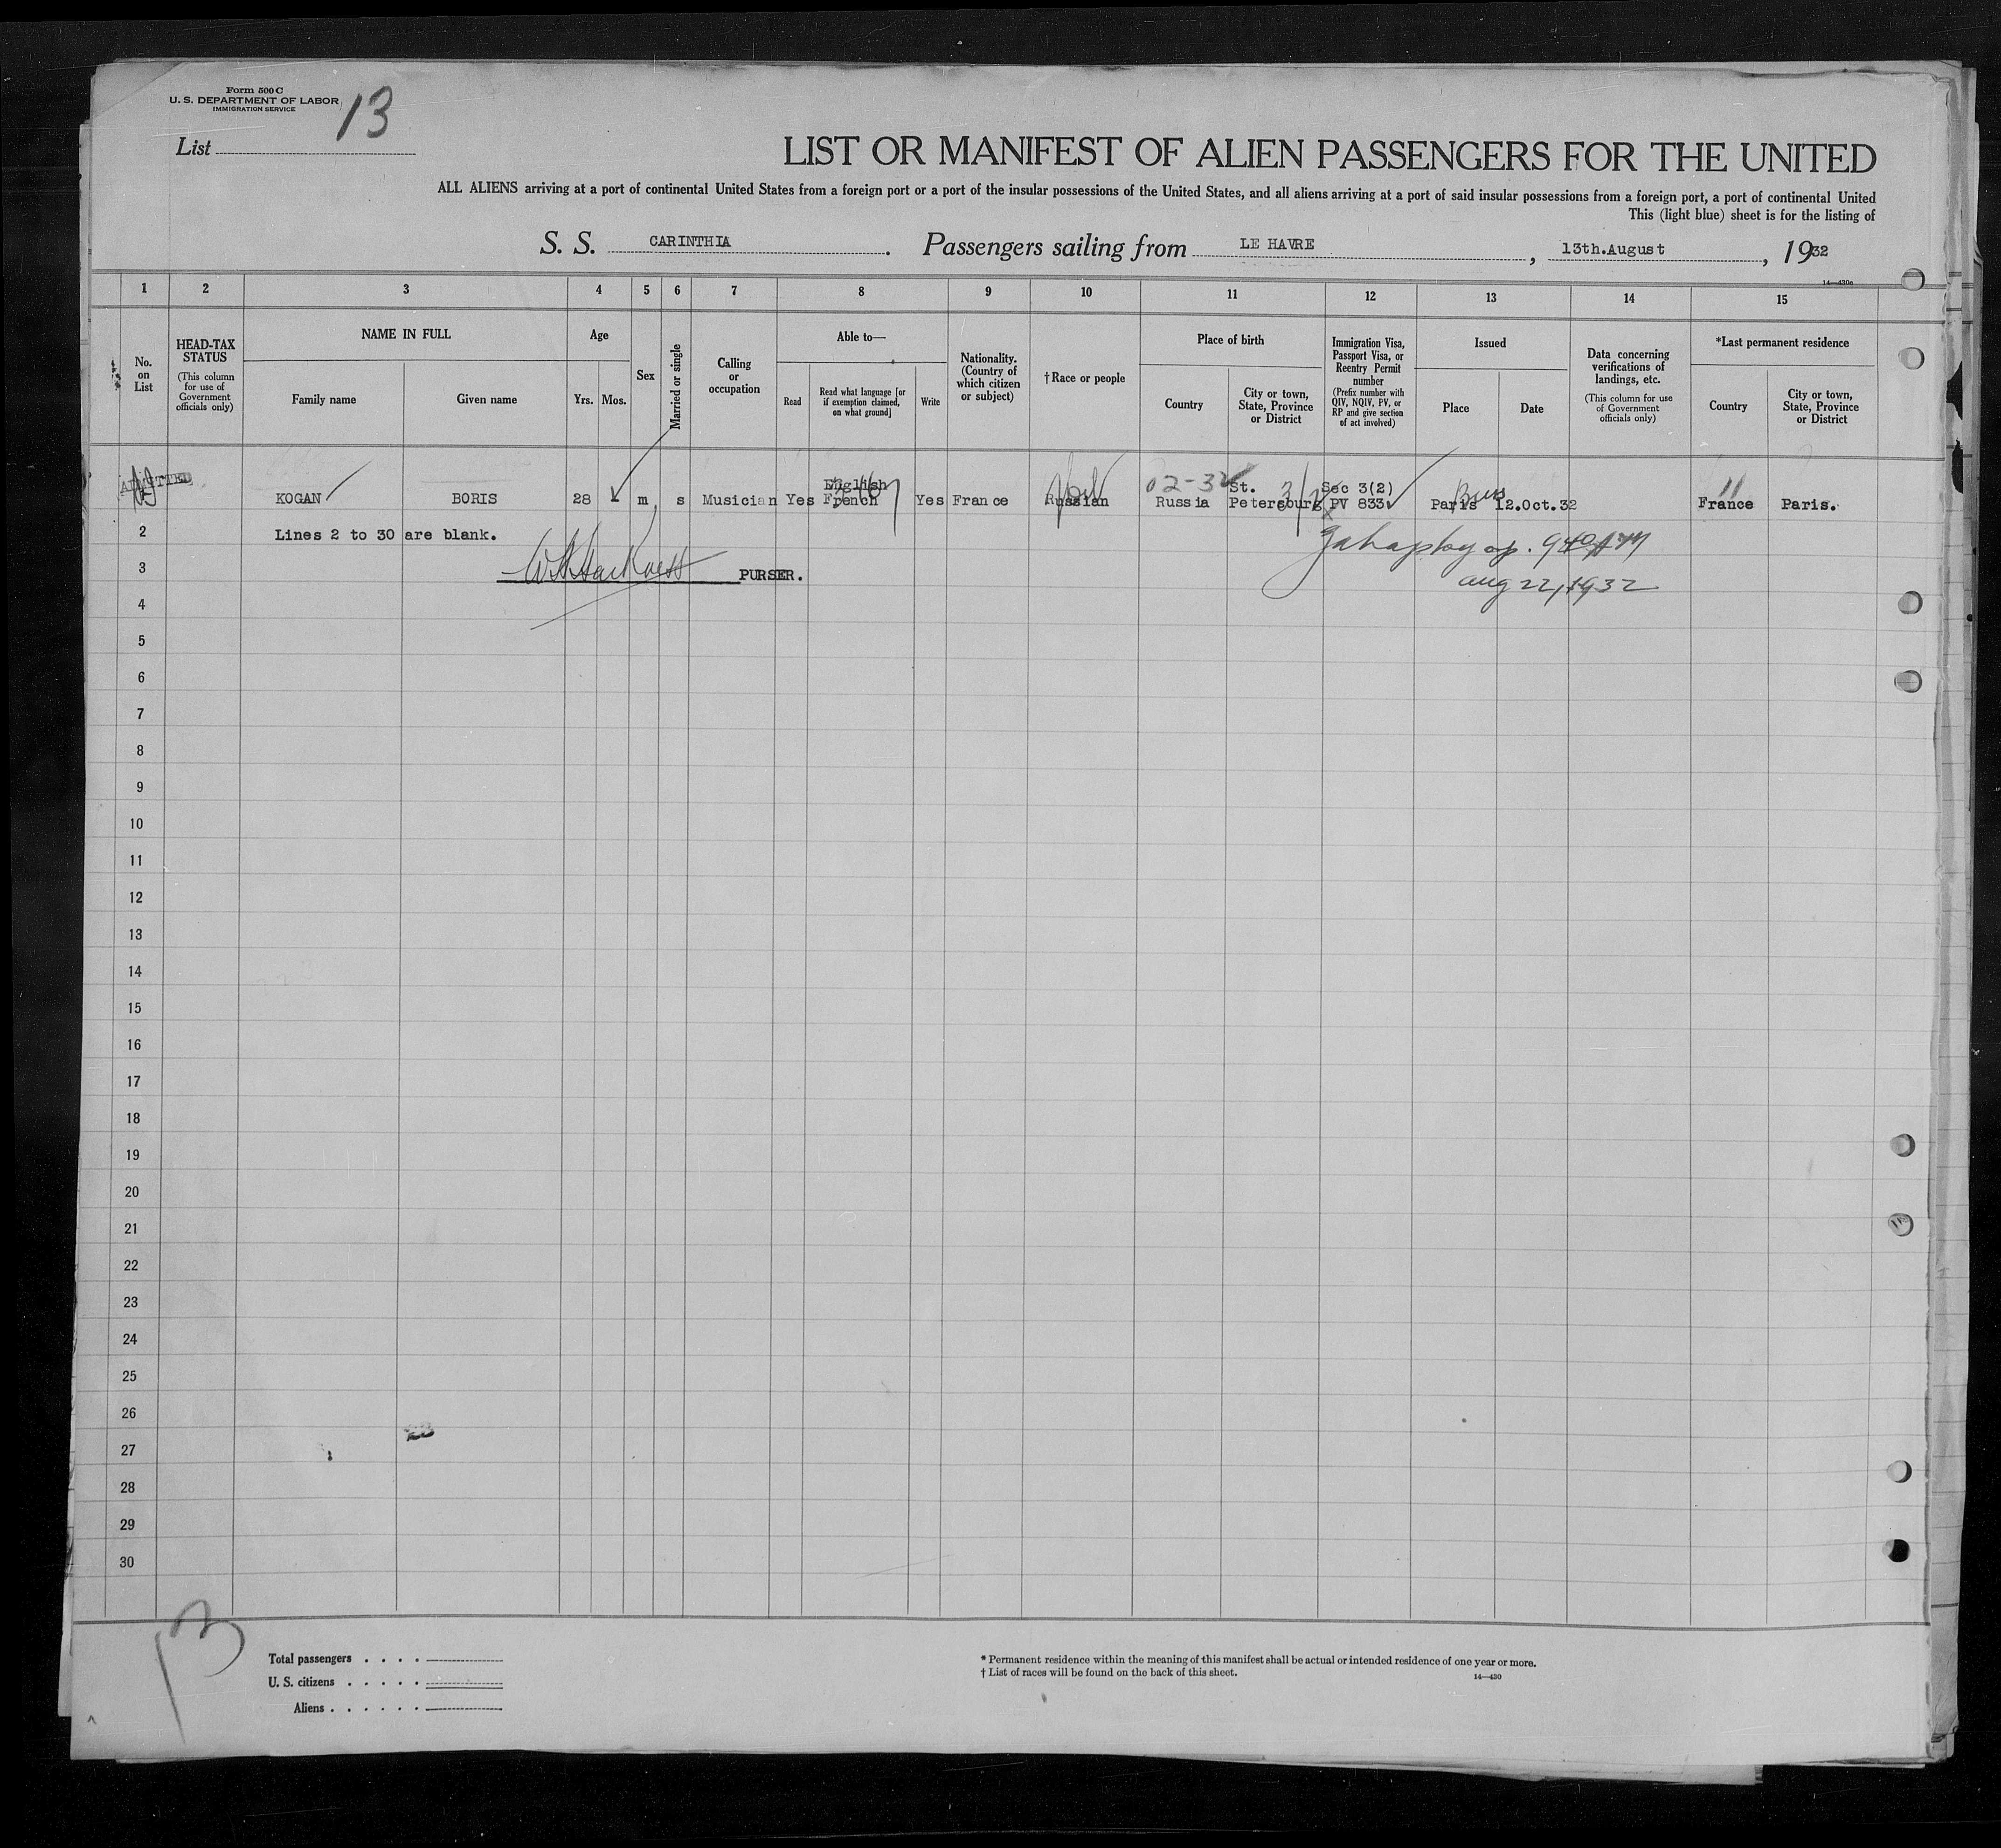 Form 500 C
U. S. DEPARTMENT OF LABOR
IMMIGRATION SERVICE
13
List
LIST OR MANIFEST OF ALIEN PASSENGERS FOR THE UNITED
ALL ALIENS arriving at a port of continental United States from a foreign port or a port of the insular possessions of the United States, and all aliens arriving at a port of said insular possessions from a foreign port, a port of continental United
This (light blue) sheet is for the listing of
S. S. CARINTHIA. Passengers sailing from LE HAVRE, 13th.August, 1932
14—430a
1 2 3 4 5 6 7 8 9 10 11 12 13 14 15
No. on List
HEAD-TAX STATUS
(This column for use of Government officials only)
NAME IN FULL
Family name
Given name
Age
Yrs.
Mos.
Sex
Married or single
Calling or occupation
Able to—
Read
Read what language [or if exemption claimed, on what ground]
Write
Nationality. (Country of which citizen or subject)
†Race or people
Place of birth
Country
City or town, State, Province or District
Immigration Visa, Passport Visa, or Reentry Permit number
(Prefix number with QIV, NQIV, PV, or RP and give section of act involved)
Issued
Place
Date
Data concerning verifications of landings, etc.
(This column for use of Government officials only)
*Last permanent residence
Country
City or town, State, Province or District
ADMITTED
KOGAN BORIS 28 m s Musician Yes English French Yes France Russian Russia St. Petersburg Sec 3(2) PV 833 Paris 12.Oct.32 France Paris.
02-32
2 Lines 2 to 30 are blank.
940 AM
3 PURSER.
Aug 22, 1932
4
5
6
7
8
9
10
11
12
13
14
15
16
17
18
19
20
21
22
23
24
25
26
27
28
29
30
13
Total passengers
U. S. citizens
Aliens
* Permanent residence within the meaning of this manifest shall be actual or intended residence of one year or more.
† List of races will be found on the back of this sheet.
14—430